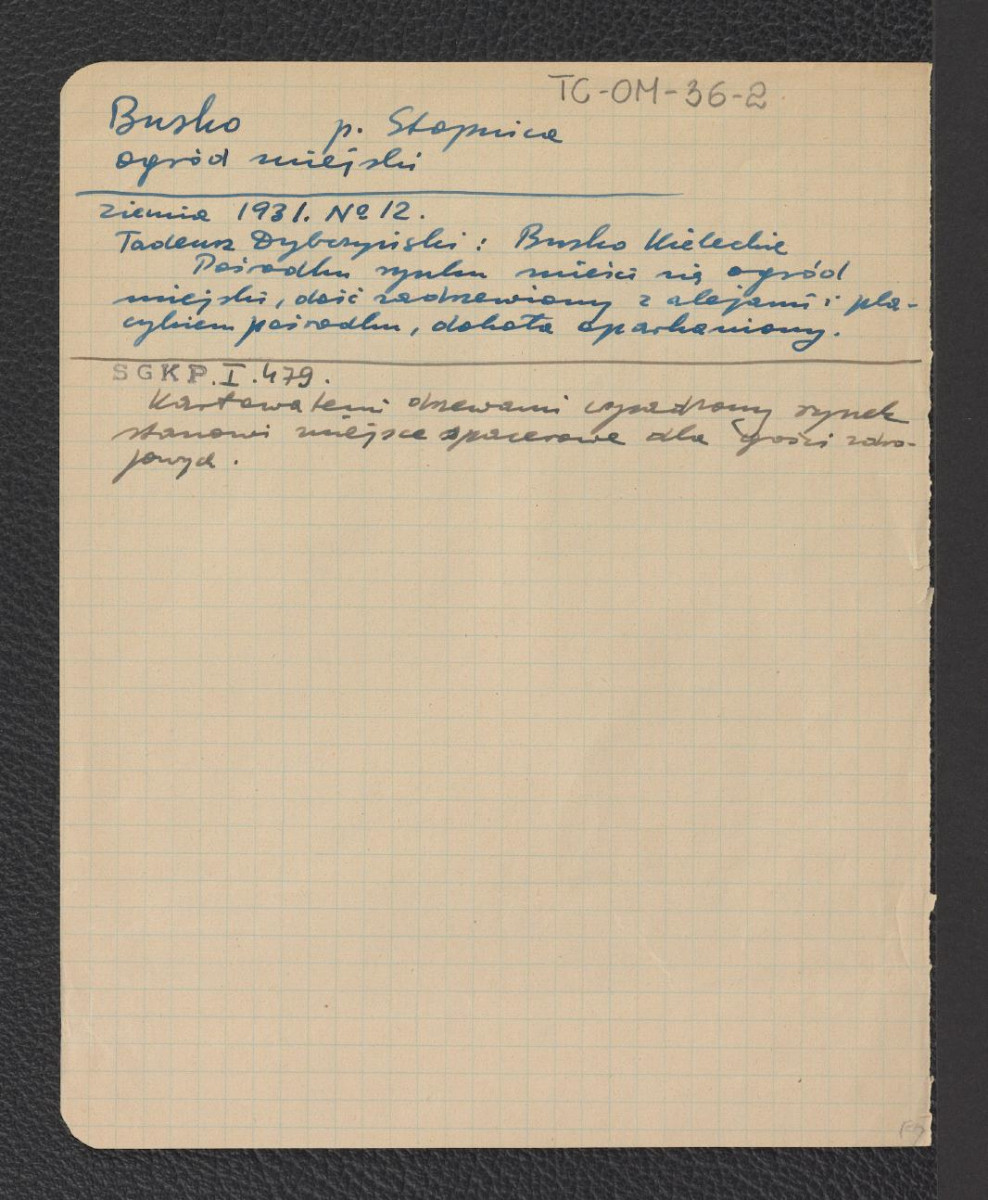 TC-OM-36-2
Busko p. Stopnica
ogród miejski
Ziemia 1931. № 12.
Tadeusz Dybczyński: Busko Kieleckie
Pośrodku rynku mieści się ogród
miejski, dość zadrzewiony z alejami i pla-
cykiem pośrodku, dokoła oparkaniony.
SGKP. I. 479.
Karłowatemi drzewami wysadzony rynek
stanowi miejsce spacerowe dla gości zdro-
jowych.